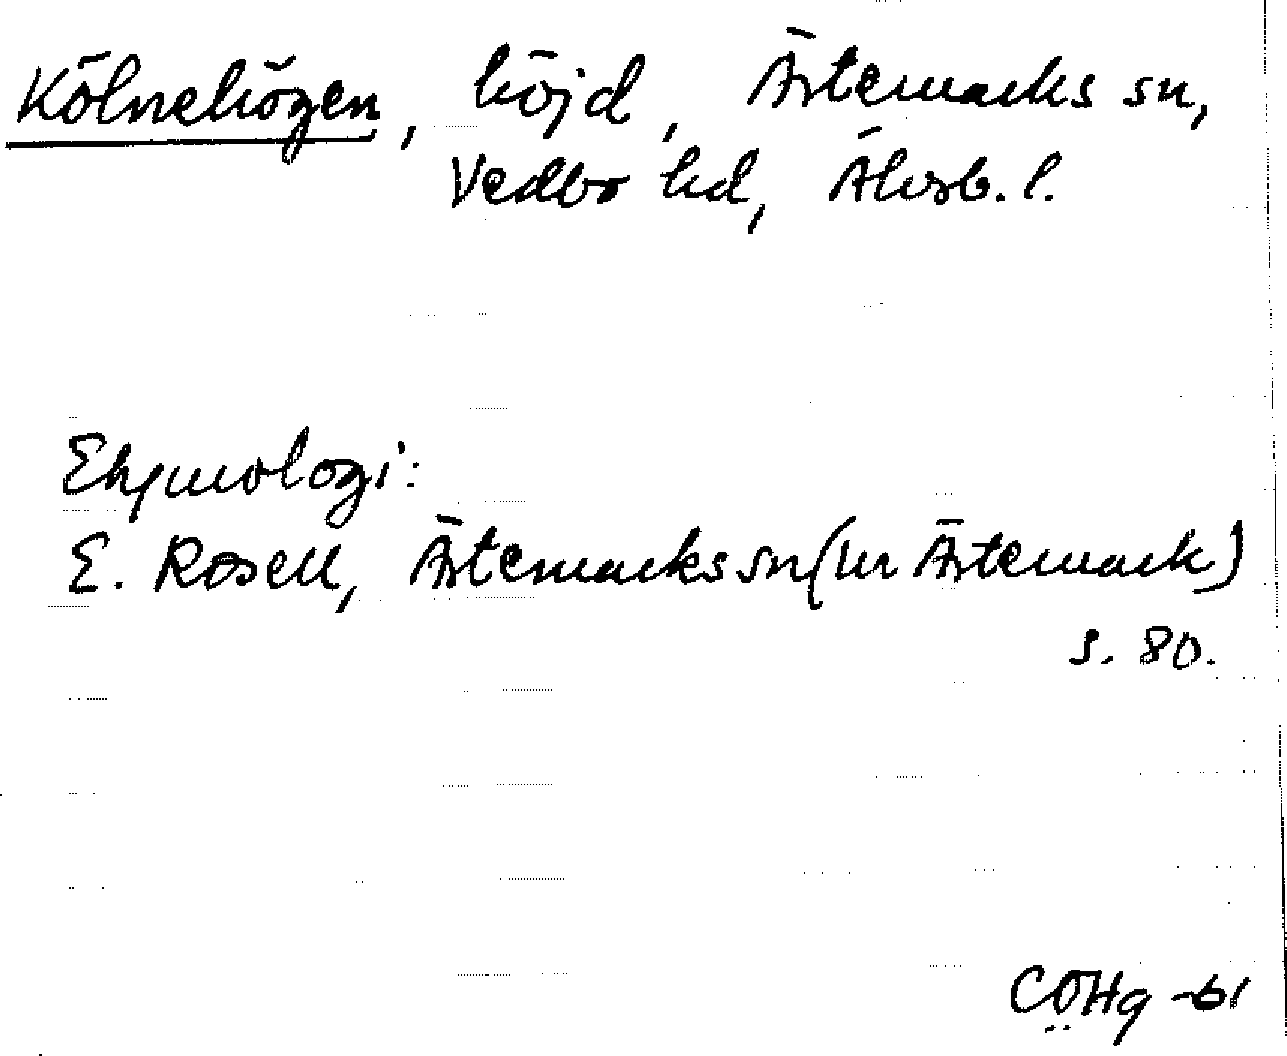 Kölnehögen, höjd, Ärtemarks sn,
Vedbo hd, Älvsb. l.
Etymologi:
E. Rosell, Ärtemarks sn (ur Ärtemark)
s. 80.
CÖHg -61